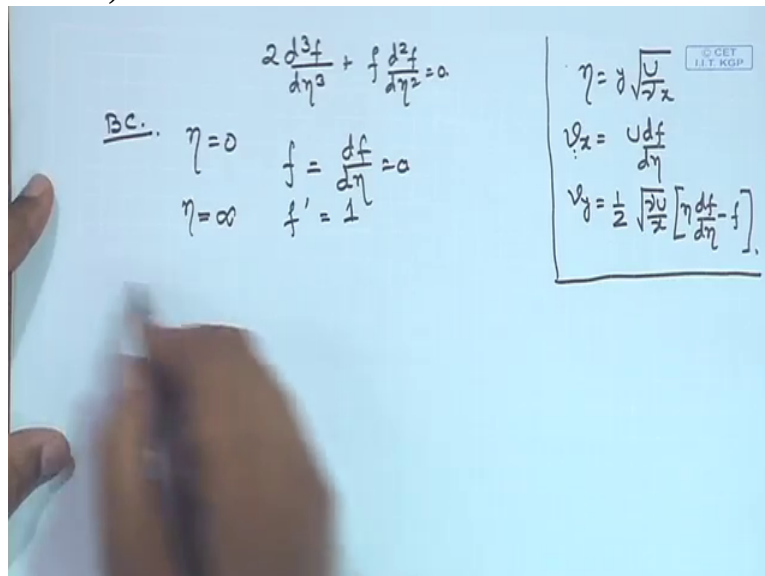 2 d³f/dη³ + f d²f/dη² = 0.
BC.
η = 0 f = df/dη = 0
η = ∞ f' = 1
© CET
I.I.T. KGP
η = y √(U/νx)
υx = U df/dη
υy = 1/2 √(νU/x) [η df/dη - f].